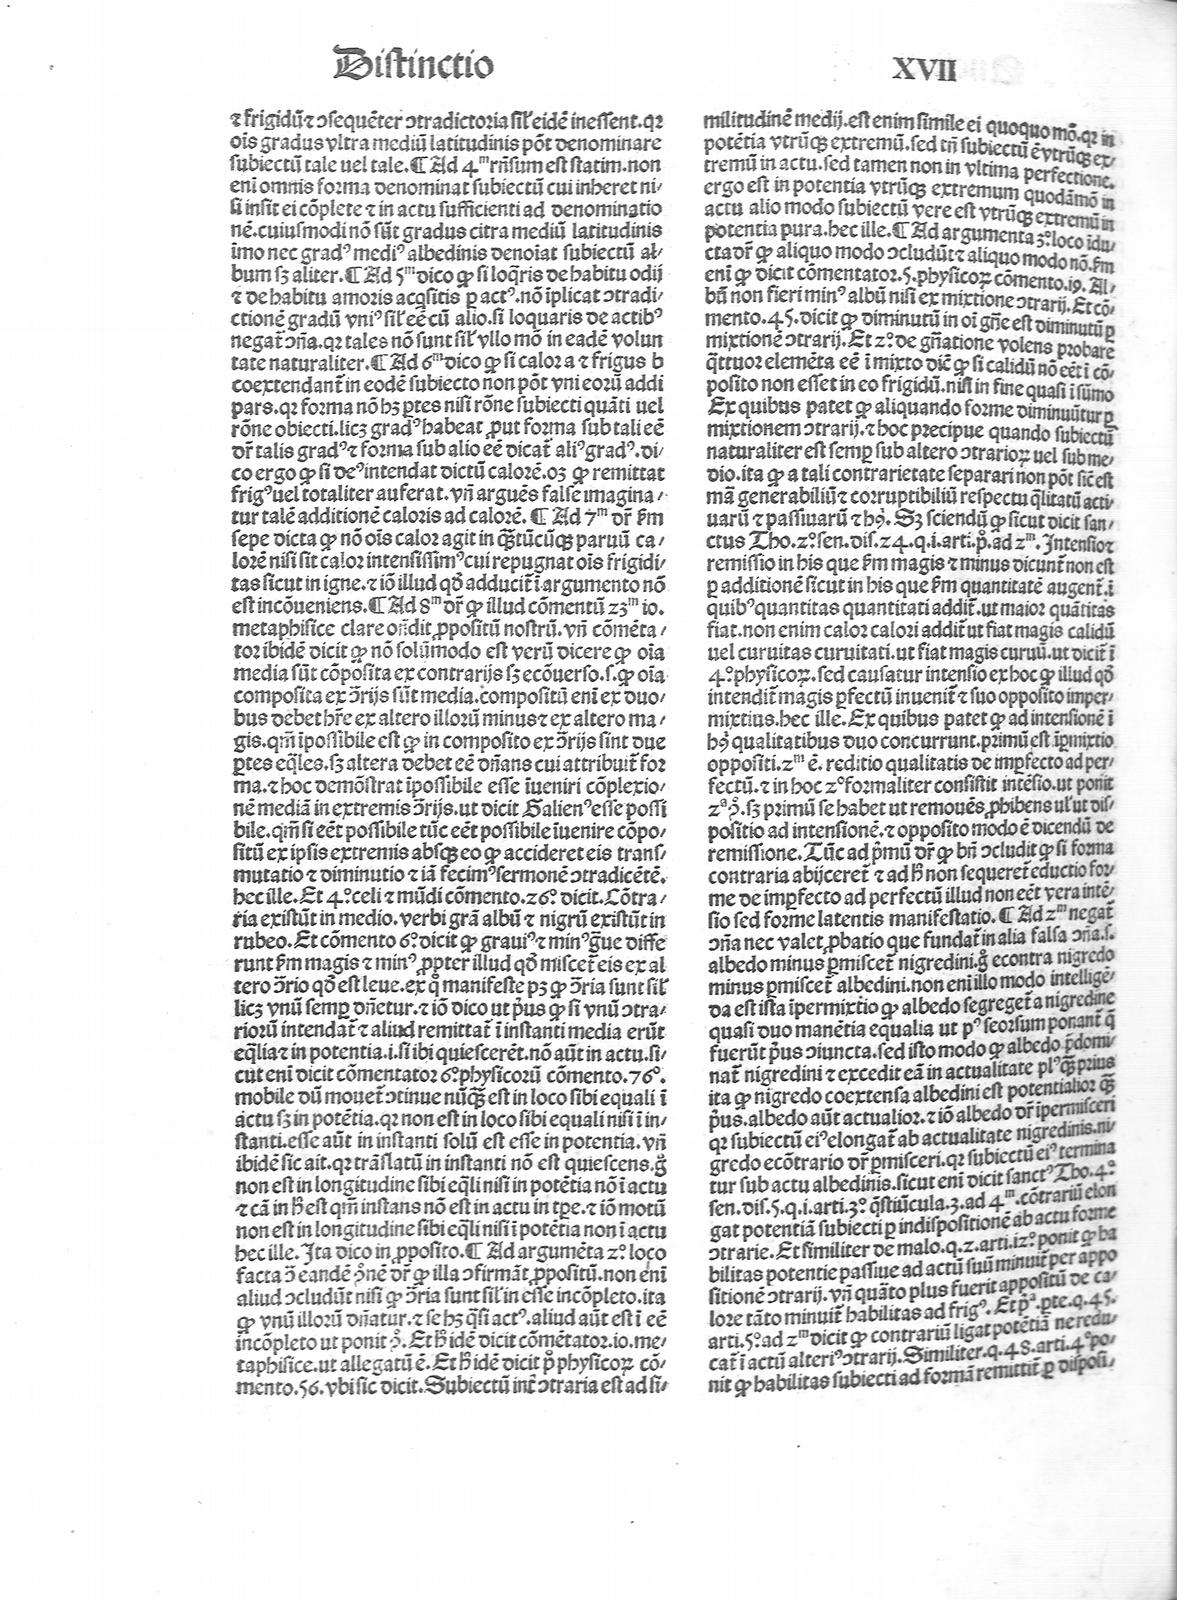 Distinctio
XVII
⁊ frigidū ⁊ ↄsequēter ↄtradictoria sil' eidē inessent. qꝛ
oīs gradus vltra mediū latitudinis pōt denominare
subiectū tale uel tale. ¶ Ad 4ᵐ rn̄sum est statim. non
eni omnis forma denominat subiectū cui inheret ni/
si insit ei cōplete ⁊ in actu sufficienti ad denominatio
nē. cuiusmodi nō sūt gradus citra mediū latitudinis
īmo nec gradꝰ mediꝰ albedinis denoīat subiectū al/
bum sꝫ aliter. ¶ Ad 5ᵐ dico ꝙ si loq̄ris de habitu odij
⁊ de habitu amoris acq̄sitis ꝑ actꝰ. nō īplicat ↄtradi/
ctionē gradū vniꝰ sil' eē cū alio. si loquaris de actibꝰ
negat̄ ↄn̄a. qꝛ tales nō sunt sil' vllo mō in eadē volun
tate naturaliter. ¶ Ad 6ᵐ dico ꝙ si calor a ⁊ frigus b
coextendant̄ in eodē subiecto non pōt vni eorū addi
pars. qꝛ forma nō hꝫ ꝑtes nisi rōne subiecti quāti uel
rōne obiecti. licꝫ gradꝰ habeat ꝓut forma sub tali eē
dr̄ talis gradꝰ ⁊ forma sub alio eē dicat̄ aliꝰ gradꝰ. di/
co ergo ꝙ si deꝰ intendat dictū calorē. oꝫ ꝙ remittat
frigꝰ uel totaliter auferat. vn̄ arguēs false imagina/
tur talē additionē caloris ad calorē. ¶ Ad 7ᵐ dr̄ ẜm
sepe dicta ꝙ nō oīs calor agit in q̄stūcūqꝫ paruū ca/
lorē nisi sit calor intensissimꝰ cui repugnat oīs frigidi/
tas sicut in igne. ⁊ iō illud qđ adducit̄ ī argumento nō
est incōueniens. ¶ Ad 8ᵐ dr̄ ꝙ illud cōmentū 23ᵐ 10.
metaphisice clare on̄dit ꝓpositū nostrū. vn̄ cōmēta/
tor ibidē dicit ꝙ nō solūmodo est verū dicere ꝙ oīa
media sūt cōposita ex contrarijs sꝫ ecōuerso. s. ꝙ oīa
composita ex ↄ̄rijs sūt media. compositū eni ex duo/
bus debet hr̄e ex altero illorū minus ⁊ ex altero ma/
gis. qm̄ īpossibile est ꝙ in composito ex ↄ̄rijs sint due
ꝑtes eq̄les. sꝫ altera debet eē dn̄ans cui attribuit̄ for
ma. ⁊ hoc demōstrat īpossibile esse īueniri cōplexio/
nē mediā in extremis ↄ̄rijs. ut dicit Galienꝰ esse possi
bile. qm̄ si eēt possibile tūc eēt possibile īuenire cōpo/
situ ex ipsis extremis absqꝫ eo ꝙ accideret eis trans/
mutatio ⁊ diminutio ⁊ iā fecimꝰ sermonē ↄtradicētē.
hec ille. Et 4° celi ⁊ mūdi cōmento. 26° dicit. Cōtra/
ria existūt in medio. verbi grā albū ⁊ nigrū existūt in
rubeo. Et cōmento 6° dicit ꝙ grauiꝰ ⁊ minꝰ g̈ue diffe
runt ẜm magis ⁊ minꝰ ꝓpter illud qđ miscet̄ eis ex al
tero ↄ̄rio qđ est leue. ex q̊ manifeste pꝫ ꝙ ↄ̄ria sunt sil'
licꝫ vnū semꝑ dn̄etur. ⁊ iō dico ut pͥus ꝙ si vnū ↄtra/
riorū intendat̄ ⁊ aliud remittat̄ ī instanti media erūt
eq̄lia ⁊ in potentia. i. si ibi quiescerēt. nō aūt in actu. si/
cut eni dicit cōmentator 6° physicorū cōmento. 76°.
mobile dū mouet̄ ↄtinue nūq̄ꝫ est in loco sibi equali ī
actu sꝫ in potētia. qꝛ non est in loco sibi equali nisi ī in/
stanti. esse aūt in instanti solū est esse in potentia. vn̄
ibidē sic ait. qꝛ trāslatū in instanti nō est quiescens. g̊
non est in longitudine sibi eq̄li nisi in potētia nō ī actu
⁊ cā in hͦ est qm̄ instans nō est in actu in tꝑe. ⁊ iō motū
non est in longitudine sibi eq̄li nisi ī potētia non ī actu
hec ille. Ita dico in ꝓposito. ¶ Ad argumēta 2° loco
facta ↄ̄ eandē ↄ̊nē dr̄ ꝙ illa ↄfirmāt ꝓpositū. non eni
aliud ↄcludūt nisi ꝙ ↄ̄ria sunt sil' in esse incōpleto. ita
ꝙ vnū illorū dn̄atur. ⁊ se hꝫ q̄si actꝰ. aliud aūt est ī eē
incōpleto ut ponit ↄ̊. Et hͦ idē dicit cōmētator. 10. me/
taphisice. ut allegatū ē. Et hͦ idē dicit pͦ physicoꝝ cō/
mento. 56. vbi sic dicit. Subiectū int̄ ↄtraria est ad si/
militudinē medij. est enim simile ei quoquo mō. qꝛ in
potētia vtrūqꝫ extremū. sed tn̄ subiectū ē vtrūqꝫ ex/
tremū in actu. sed tamen non in vltima perfectione.
ergo est in potentia vtrūqꝫ extremum quodāmō in
actu alio modo subiectū vere est vtrūqꝫ extremū in
potentia pura. hec ille. ¶ Ad argumenta 3° loco īdu/
cta dr̄ ꝙ aliquo modo ↄcludūt ⁊ aliquo modo nō. ẜm
eni ꝙ dicit cōmentator. 5. physicoꝝ cōmento. 19. Al/
bū non fieri minꝰ albū nisi ex mixtione ↄtrarij. Et cō/
mento. 45. dicit ꝙ diminutū in oī gn̄e est diminutū ꝑ
mixtionē ↄtrarij. Et 2° de gn̄atione volens probare
q̄ttuor elemēta eē ī mixto dic̄ ꝙ si calidū nō eēt ī cō/
posito non esset in eo frigidū. nisi in fine quasi ī sūmo
Ex quibus patet ꝙ aliquando forme diminuūtur ꝑ
mixtionem ↄtrarij. ⁊ hoc precipue quando subiectū
naturaliter est semꝑ sub altero ↄtrarioꝝ uel sub me/
dio. ita ꝙ a tali contrarietate separari non pōt sic̄ est
mā generabiliū ⁊ corruptibiliū respectu q̄litatū acti/
uarū ⁊ passiuarū ⁊ hꝰ. Sꝫ sciendū ꝙ sicut dicit san/
ctus Tho. 2° sen. dis. 24. q. i. arti. pͦ. ad 2ᵐ. Intensio ⁊
remissio in his que ẜm magis ⁊ minus dicunt̄ non est
ꝑ additionē sicut in his que ẜm quantitatē augent̄. ī
quibꝰ quantitas quantitati addit̄. ut maior quātitas
fiat. non enim calor calori addit̄ ut fiat magis calidū
uel curuitas curuitati. ut fiat magis curuū. ut dicit̄ ī
4° physicoꝝ. sed causatur intensio ex hoc ꝙ illud qđ
intendit̄ magis ꝑfectū inuenit̄ ⁊ suo opposito imper/
mixtius. hec ille. Ex quibus patet ꝙ ad intensionē ī
hꝰ qualitatibus duo concurrunt. primū est īꝑmixtio
oppositi. 2ᵐ ē. reditio qualitatis de imꝑfecto ad per/
fectū. ⁊ in hoc 2° formaliter consistit intēsio. ut ponit
2ª ↄ̊. sꝫ primū se habet ut remouēs ꝓhibens ul' ut dis/
positio ad intensionē. ⁊ opposito modo ē dicendū de
remissione. Tūc ad pͥmū dr̄ ꝙ bn̄ ↄcludit ꝙ si forma
contraria abijceret̄ ⁊ ad hͦ non sequeret̄ eductio for/
me de imꝑfecto ad perfectū illud non eēt vera intē/
sio sed forme latentis manifestatio. ¶ Ad 2ᵐ negat̄
ↄn̄a nec valet ꝓbatio que fundat̄ in alia falsa ↄn̄a. s.
albedo minus ꝑmiscet̄ nigredini. g̊ econtra nigredo
minus ꝑmiscet̄ albedini. non eni illo modo intellige/
da est ista īpermixtio ꝙ albedo segreget̄ a nigredine
quasi duo manētia equalia ut pꝰ seorsum ponant̄ q̄
fuerūt pͥus ↄiuncta. sed isto modo ꝙ albedo p̄domi/
nat̄ nigredini ⁊ excedit eā in actualitate plꝰ q̄ꝫ prius
ita ꝙ nigredo coextensa albedini est potentialior q̄ꝫ
pͥus. albedo aūt actualior. ⁊ iō albedo dr̄ īpermisceri
qꝛ subiectū eiꝰ elongat̄ ab actualitate nigredinis. ni/
gredo ecōtrario dr̄ ꝑmisceri. qꝛ subiectū eiꝰ termina
tur sub actu albedinis. sicut eni dicit sanctꝰ Tho. 4°
sen. dis. 5. q. i. arti. 3° q̄stiūcula. 3. ad 4ᵐ. cōtrariū elon
gat potentiā subiecti ꝑ indispositionē ab actu forme
ↄtrarie. Et similiter de malo. q. 2. arti. 12° ponit ꝙ ha
bilitas potentie passiue ad actū suū minuit̄ per appo
sitionē ↄtrarij. vn̄ quāto plus fuerit appositū de ca/
lore tāto minuit̄ habilitas ad frigꝰ. Et pͣ. pte. q. 45.
arti. 5° ad 2ᵐ dicit ꝙ contrariū ligat potētiā ne redu/
cat̄ ī actū alteriꝰ ↄtrarij. Similiter. q. 48. arti. 4° po/
nit ꝙ habilitas subiecti ad formā remittit̄ ꝑ disposi/